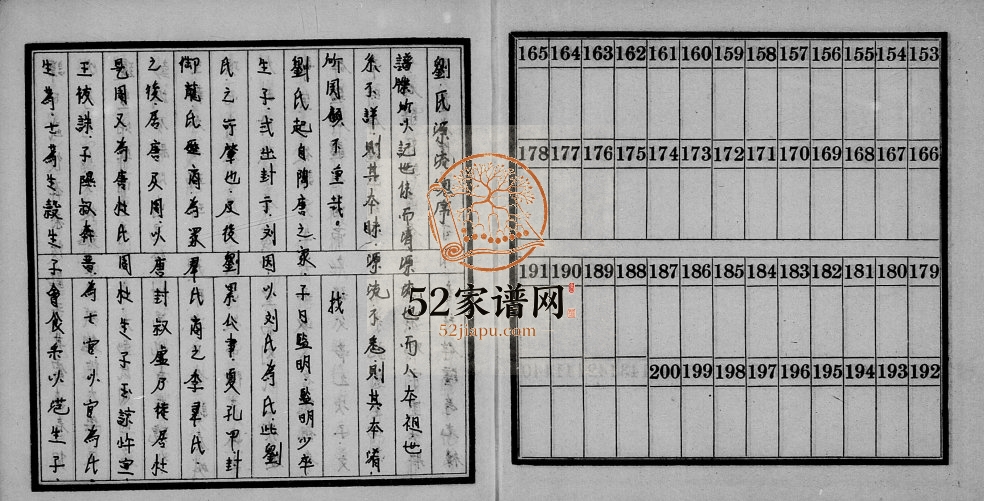 劉氏源流總序
譜牒所以記世係而明源流也.而人本祖世
系不詳.則其本昧.源流不悉.則其本淆
所関顧不重哉.
劉氏起自陶唐之泉.子曰監明.監明少卒
生子.式出封于.刘因以刘氏為氏.此劉
氏之所肇也.及後劉累公事.夏孔甲.封
御龍氏.歴商為豕韋氏.商之季韋氏
之後居唐.及周.以唐封叔虞.乃徙居杜
是周又為唐杜氏.周杜.生子.玉諒.忤宣.
王被誅.子隰叔奔晋.為士官以官為氏.
生蒍.士蒍生.穀生子會食采以范生子.
165 164 163 162 161 160 159 158 157 156 155 154 153
178 177 176 175 174 173 172 171 170 169 168 167 166
191 190 189 188 187 186 185 184 183 182 181 180 179
200 199 198 197 196 195 194 193 192
52家谱网
52jiapu.com